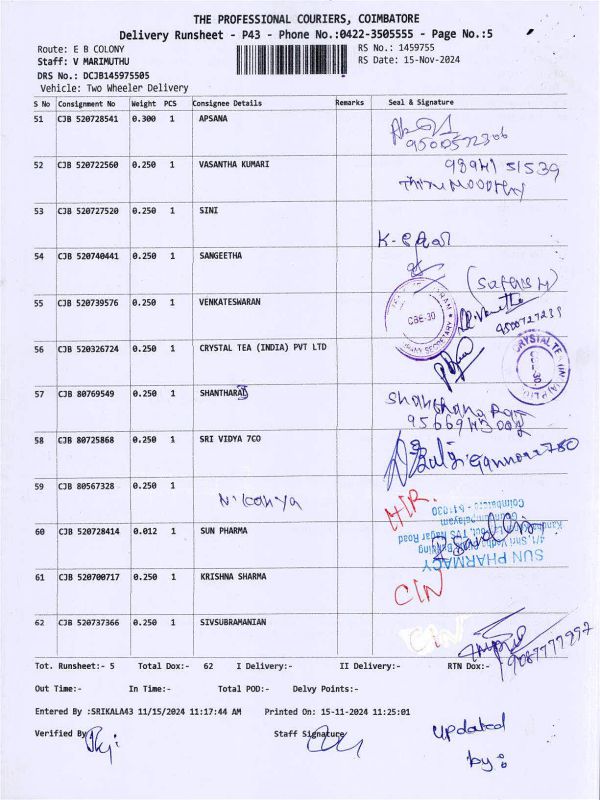 THE PROFESSIONAL COURIERS, COIMBATORE
Delivery Runsheet - P43 - Phone No.:0422-3505555 - Page No.:5
Route: E B COLONY
Staff: V MARIMUTHU
DRS No.: DCJB145975505
Vehicle: Two Wheeler Delivery
RS No.: 1459755
RS Date: 15-Nov-2024
S No Consignment No Weight PCS Consignee Details Remarks Seal & Signature
51 CJB 520728541 0.300 1 APSANA
9500572306
52 CJB 520722560 0.250 1 VASANTHA KUMARI
98941 51539
53 CJB 520727520 0.250 1 SINI
54 CJB 520740441 0.250 1 SANGEETHA
55 CJB 520739576 0.250 1 VENKATESWARAN
CBE-30
56 CJB 520326724 0.250 1 CRYSTAL TEA (INDIA) PVT LTD
57 CJB 80769549 0.250 1 SHANTHARAJ
58 CJB 80725868 0.250 1 SRI VIDYA 7CO
59 CJB 80567328 0.250 1
60 CJB 520728414 0.012 1 SUN PHARMA
SUN PHARMACY
Coimbatore - 641030
61 CJB 520700717 0.250 1 KRISHNA SHARMA
CIN
62 CJB 520737366 0.250 1 SIVSUBRAMANIAN
CIN
Tot. Runsheet:- 5 Total Dox:- 62 I Delivery:- II Delivery:- RTN Dox:-
Out Time:- In Time:- Total POD:- Delvy Points:-
Entered By :SRIKALA43 11/15/2024 11:17:44 AM Printed On: 15-11-2024 11:25:01
Verified By
Staff Signature
updated
by: